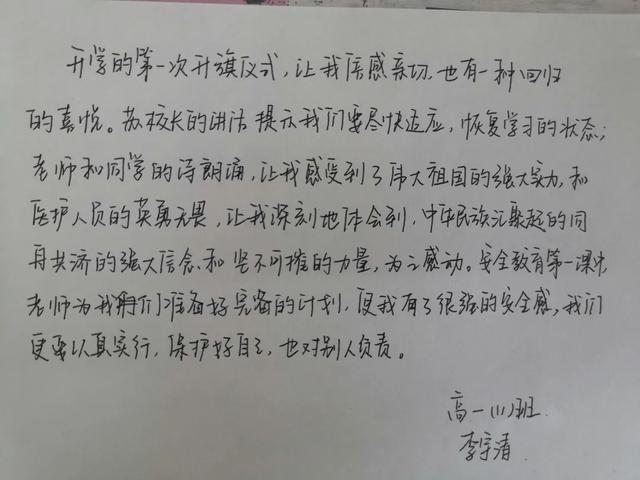 开学的第一次升旗仪式，让我倍感亲切，也有一种回归
的喜悦。苏校长的讲话提示我们要尽快适应，恢复学习的状态；
老师和同学的诗朗诵，让我感受到了伟大祖国的强大实力，和
医护人员的英勇无畏，让我深刻地体会到，中华民族汇聚起的同
舟共济的强大信念和坚不可摧的力量，为之感动。安全教育第一课中，
老师为我们准备好完备的计划，使我有了很强的安全感，我们
更要认真实行，保护好自己，也对别人负责。
高一(1)班
李宇清